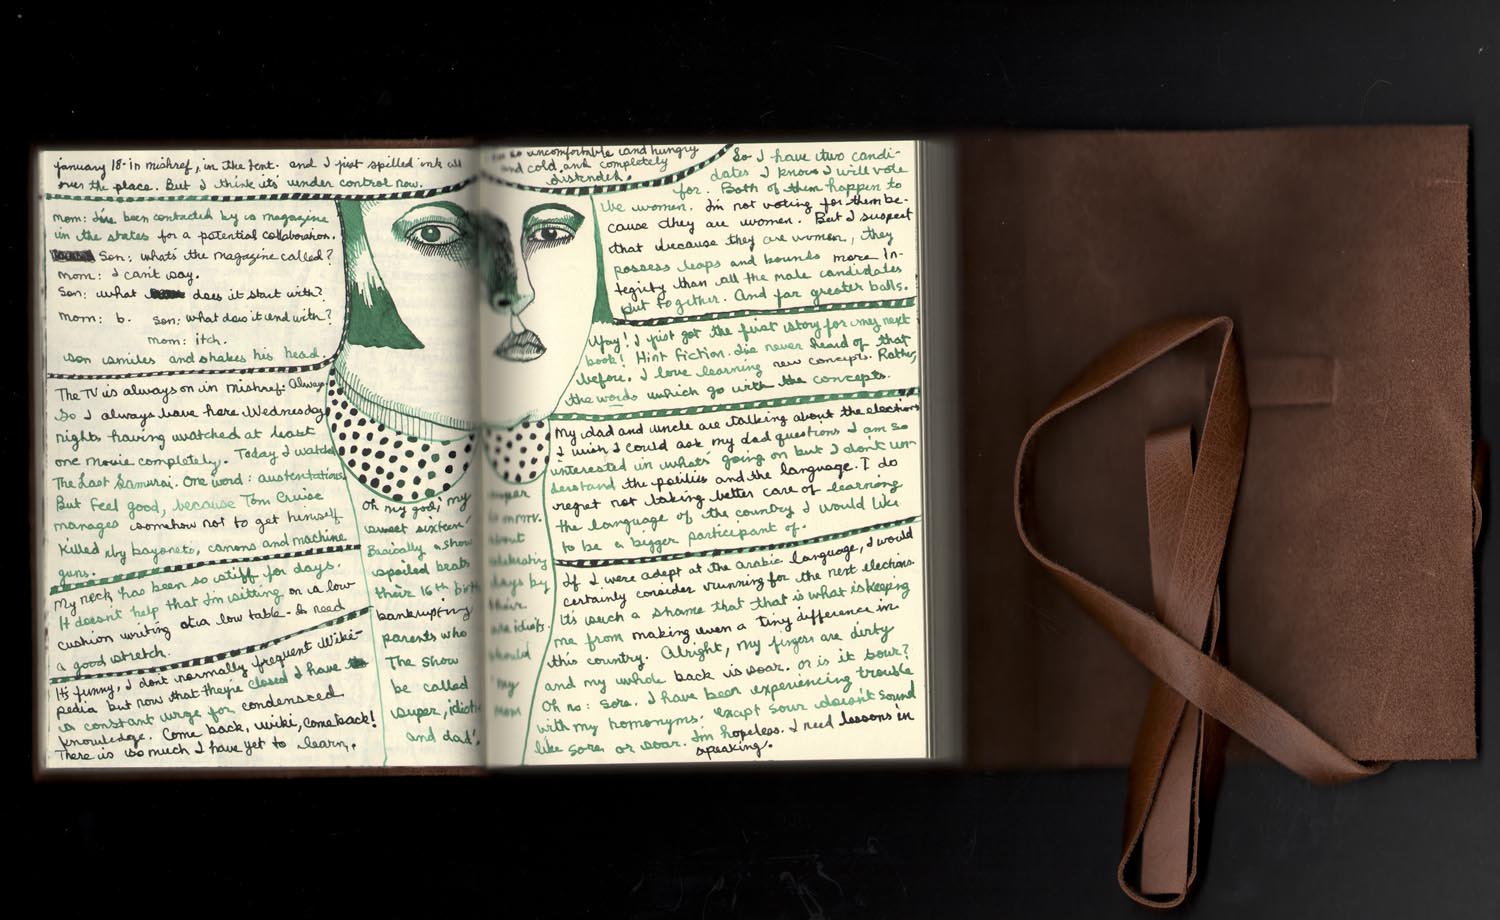 january 18 - in mishref, in the tent. and I just spilled ink all
over the place. But I think its under control now.
mom: I've been contacted by a magazine
in the states for a potential collaboration.
Son: whats the magazine called?
mom: I can't say.
Son: what does it start with?
mom: b. son: what does it end with?
mom: itch.
son smiles and shakes his head.
The TV is always on in mishref. Always
So I always leave here Wednesday
nights having watched at least
one movie completely. Today I watched
The Last Samurai. One word: austentatious.
But feel good, because Tom Cruise
manages somehow not to get himself
killed by bayonets, canons and machine
guns.
My neck has been so stiff for days.
It doesn't help that I'm sitting on a low
cushion writing at a low table - I need
a good stretch.
It's funny, I dont normally frequent Wiki-
pedia but now that they're closed I have
a constant urge for condensced
knowledge. Come back, wiki, come back!
There is so much I have yet to learn.
Oh my god, 'my
sweet sixteen'
Basically a show
spoiled brats
their 16th birth
bankrupting
parents who
The show
be called
super, idiotic
and dad'.
super
about
celebrating
days by
their
are idiots.
should
'my
mom
so uncomfortable and hungry
and cold and completely
distended.
So I have two candi-
dates I know I will vote
for. Both of them happen to
be women. I'm not voting for them be-
cause they are women. But I suspect
that because they are women, they
possess leaps and bounds more in-
tegrity than all the male candidates
put together. And far greater balls.
Yay! I just got the first story for my next
book! Hint Fiction. I've never heard of that
before. I love learning new concepts. Rather,
the words which go with the concepts.
My dad and uncle are talking about the elections
I wish I could ask my dad questions I am so
interested in whats going on but I don't un-
derstand the politics and the language. I do
regret not taking better care of learning
the language of the country I would like
to be a bigger participant of.
If I were adept at the arabic language, I would
certainly consider running for the next elections.
Its such a shame that that is what is keeping
me from making even a tiny difference in
this country. Alright, my fingers are dirty
and my whole back is soar. or is it sour?
Oh no: sore. I have been experiencing trouble
with my homonyms. except sour doesn't sound
like sore or soar. I'm hopeless. I need lessons in
speaking.